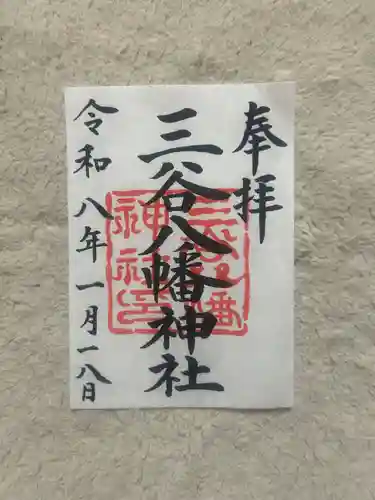 奉拝
三谷八幡神社
令和八年一月一八日
三谷八幡
神社印